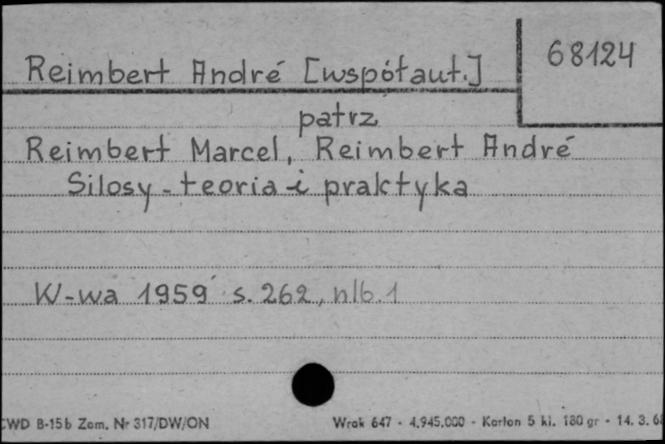 Reimbert André [współaut.]
68124
patrz
Reimbert Marcel, Reimbert André
Silosy - teoria i praktyka
W-wa 1959 s. 262, nlb. 1
CWD B-15b Zam. Nr 317/DW/ON
Wrok 647 - 4.945.000 - Karton 5 kl. 180 gr - 14. 3. 6